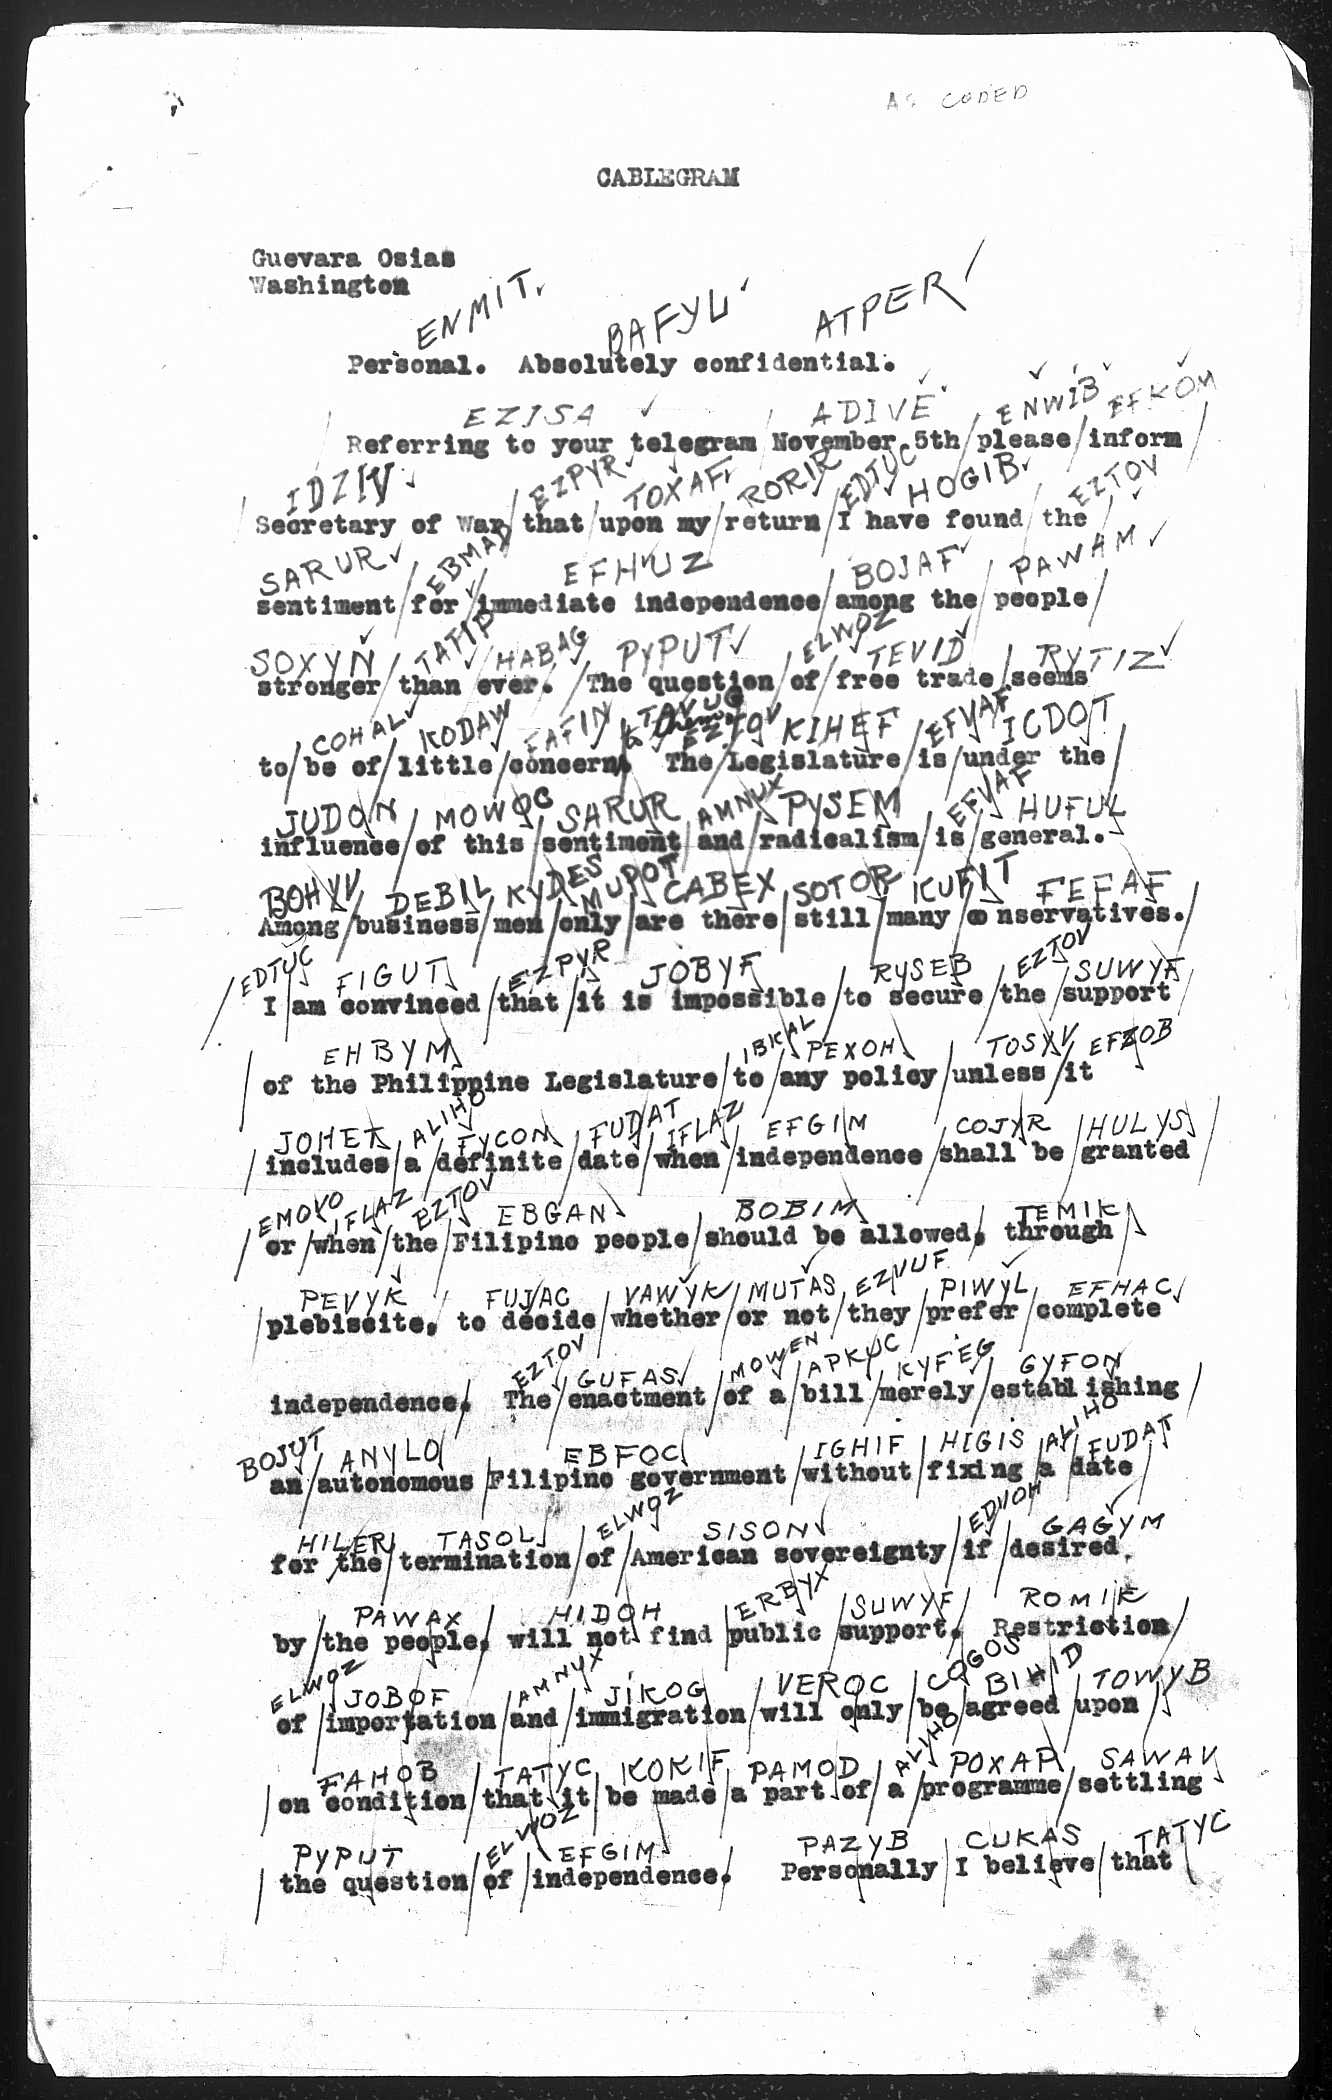 AS CODED
CABLEGRAM
Guevara Osias
Washington
ENMIT. BAFYL ATPER
Personal. Absolutely confidential.
EZISA ADIVE ENWIB EFKOM
Referring to your telegram November 5th/please/inform
IDZIV EZPYR TOXAF RORIR EDTUC HOGIB EZTOV
Secretary of War/that/upon my/return/I have found/the
SARUR EBMAD EFHUZ BOJAF PAWAM
sentiment/for/immediate independence/among the/people
SOXYN TATIP HABAG PYPUT ELWOZ TEVID RYTIZ
stronger/than ever. The question/of/free trade/seems
COHAL KODAW FAFIN TAVUG EZTOV KIHEF EFVAF ICDOT
to/be of/little/concern to them. The/Legislature/is/under the
JUDON MOWOC SARUR AMNUX PYSEM EFVAF HUFUL
influence/of this/sentiment/and/radicalism/is/general.
BOHYV DEBIL KYDES MUPOT CABEX SOTOR KUFIT FEFAF
Among/business/men/only/are there/still/many/co nservatives.
EDTUC FIGUT EZPYR JOBYF RYSEB EZTOV SUWYF
I/am convinced/that/it is impossible/to secure/the/support
EHBYM IBKAL PEXOH TOSYV EFZOB
of the Philippine Legislature/to/any policy/unless/it
JOHET ALIHO FYCON FUDAT IFLAZ EFGIM COJYR HULYS
includes/a/definite/date/when/independence/shall be/granted
EMOVO IFLAZ EZTOV EBGAN BOBIM TEMIK
or/when/the/Filipino people/should be allowed, through
PEVYK FUJAC VAWYK MUTAS EZVUF PIWYL EFHAC
plebiscite, to decide/whether/or not/they/prefer/complete
EZTOV GUFAS MOWEN APKUC KYFEG GYFON
independence. The/enactment/of a/bill/merely/establ ishing
BOJUT ANYLO EBFOC IGHIF HIGIS ALIHO FUDAT
an/autonomous/Filipino government/without/fixing/a/date
HILER TASOL ELWOZ SISON EDVOH GAGYM
for the/termination/of/American sovereignty/if/desired
PAWAX HIDOH ERBYX SUWYF ROMIK
by/the people, will not find/public/support. Restriction
ELWOZ JOBOF AMNYX JIKOG VEROC COGOS BIHID TOWYB
of/importation/and/immigration/will only/be/agreed/upon
FAHOB TATYC KOKIF PAMOD ALIHO POXAP SAWAV
on condition/that it/be made/a part of/a/programme/settling
PYPUT ELWOZ EFGIM PAZYB CUKAS TATYC
the question/of/independence. Personally/I believe/that